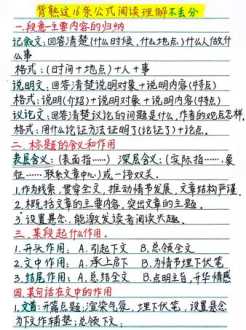 背熟这16条公式阅读理解不丢分
一.段意·主要内容的归纳
记叙文:回答清楚(什么时候,什么地点)什么人做什
么事
格式:(时间+地点)+人+事
说明文:回答清楚说明对象+说明内容(特点)
格式:说明(介绍)+说明对象+说明内容(特点)
议论文:回答清楚议论的问题是什么,作者的观点怎样
格式:用什么论证方法证明了(论证了)+论点。
二.标题的含义和作用
表层含义:(表面指……)深层含义:(实际指……,象
征……联系文章中心)或一语双关。
1.作为线索,贯穿全文,推动情节发展,文章结构严谨。
2.概括文章的主要内容,突出文章的主题。
3.设置悬念,能激发读者阅读兴趣。
三.某段起什么作用.
1.开头作用:A.引起下文 B.总领全文
2.文中作用:A.承上启下 B.为情节埋下伏笔
3.结尾作用:A.总结全文 B.点明主旨,升华情感
四.某句话在文中的作用
1.文首:开篇点题;渲染气氛,埋下伏笔,设置悬念
为下文作辅垫;总领下文;